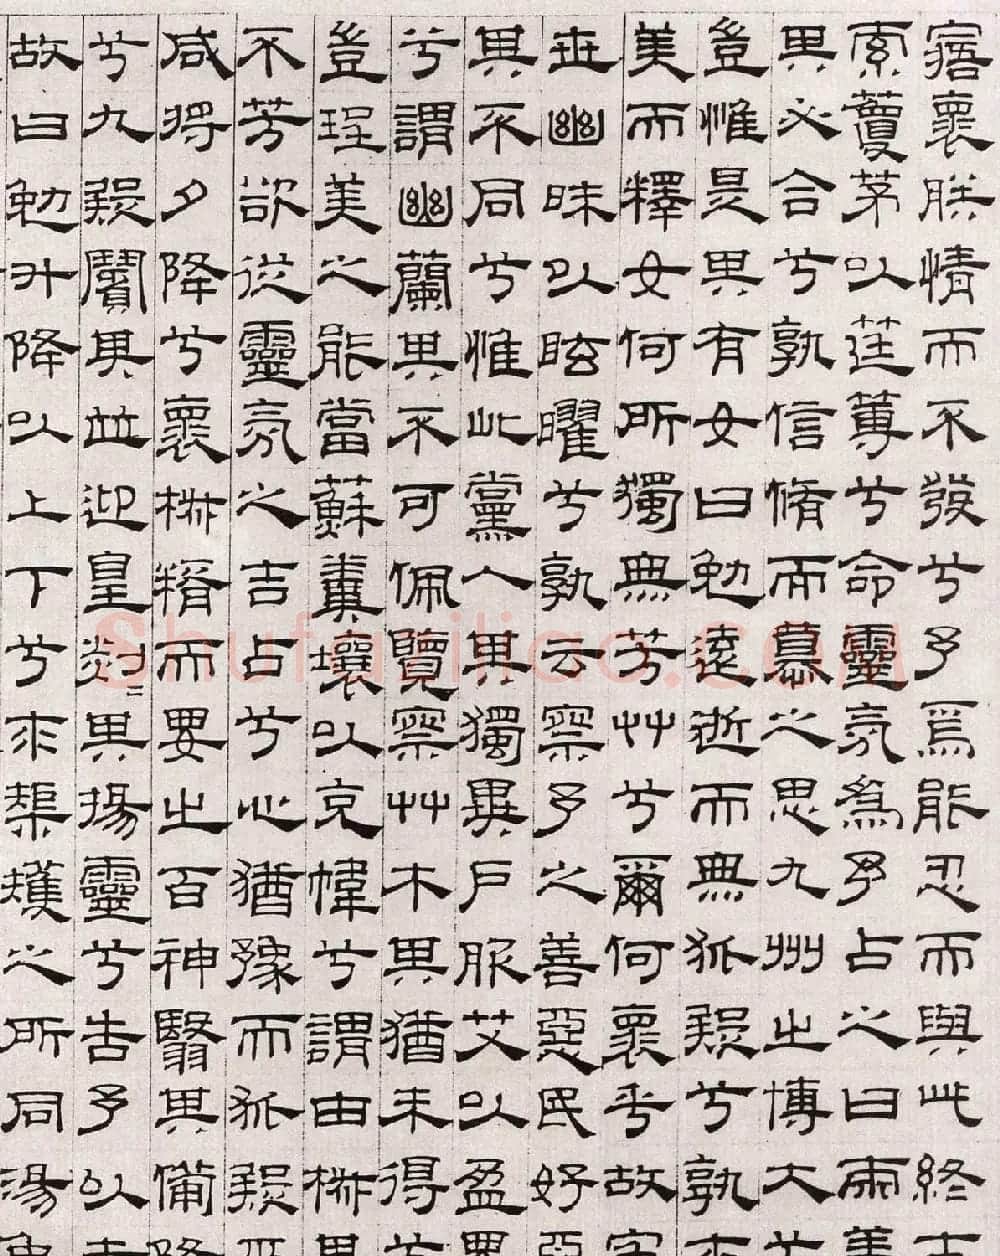 寤褱朕情而不發兮予焉能忍而與此終古
索藑茅以筳篿兮命靈氛爲予占之曰兩美
其必合兮孰信脩而慕之思九州之博大兮
豈惟是其有女曰勉遠逝而無狐疑兮孰求
美而釋女何所獨無芳艸兮爾何褱乎故宇
世幽昧以眩曜兮孰云察予之善惡民好惡
其不同兮惟此黨人其獨異戶服艾以盈要
兮謂幽蘭其不可佩覽察艸木其猶未得兮
豈珵美之能當蘇糞壤以充幃兮謂申椒其
不芳欲從靈氛之吉占兮心猶豫而狐疑巫
咸將夕降兮褱椒糈而要之百神翳其備降
兮九疑繽其並迎皇剡〻其揚靈兮告予以吉
故曰勉升降以上下兮求榘矱之所同湯禹
Shufaziliao.com